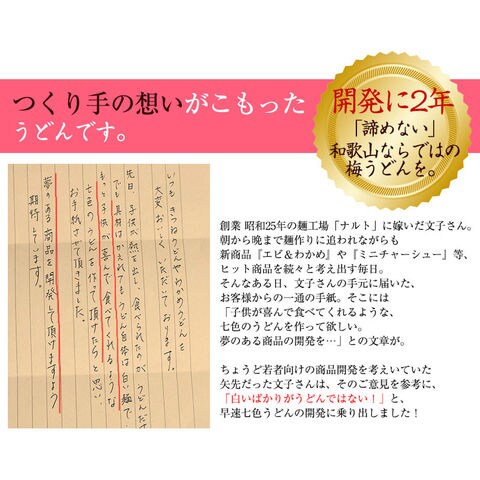 つくり手の想いがこもった
うどんです。
開発に2年
「諦めない」
和歌山ならではの
梅うどんを。
いつも きつねうどんやわかめうどんを
大変おいしく いただいております。
先日、子供が熱を出し、食べられたのが うどんだけ
でも 具材はかえれても うどん自体は白い麺で、
もっと子供が喜んで食べてくれるような
七色のうどんを作って頂けたらと思い、
お手紙させて頂きました。
夢のある商品を開発して頂けますよう
期待しています。
創業 昭和25年の麺工場「ナルト」に嫁いだ文子さん。
朝から晩まで麺作りに追われながらも
新商品『エビ&わかめ』や『ミニチャーシュー』等、
ヒット商品を続々と考え出す毎日。
そんなある日、文子さんの手元に届いた、
お客様からの一通の手紙。そこには
「子供が喜んで食べてくれるような、
七色のうどんを作って欲しい。
夢のある商品の開発を…」との文章が。
ちょうど若者向けの商品開発を考えていた
矢先だった文子さんは、そのご意見を参考に、
「白いばかりがうどんではない！」と、
早速七色うどんの開発に乗り出しました！